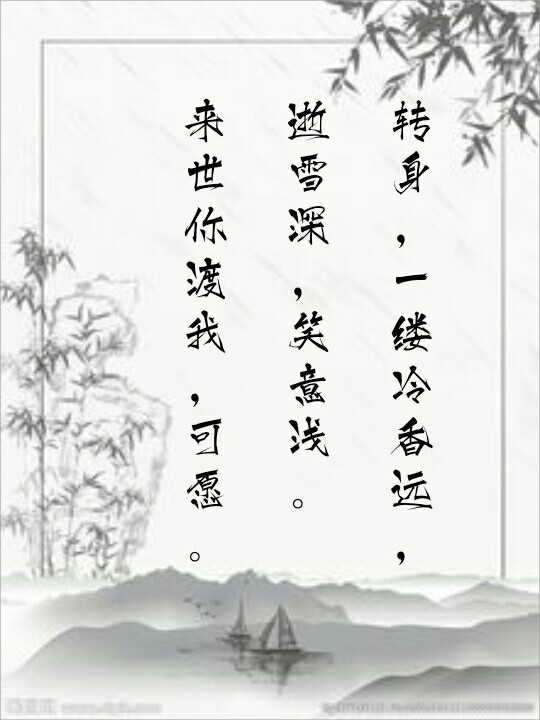 转身，一缕冷香远，
逝雪深，笑意浅。
来世你渡我，可愿。